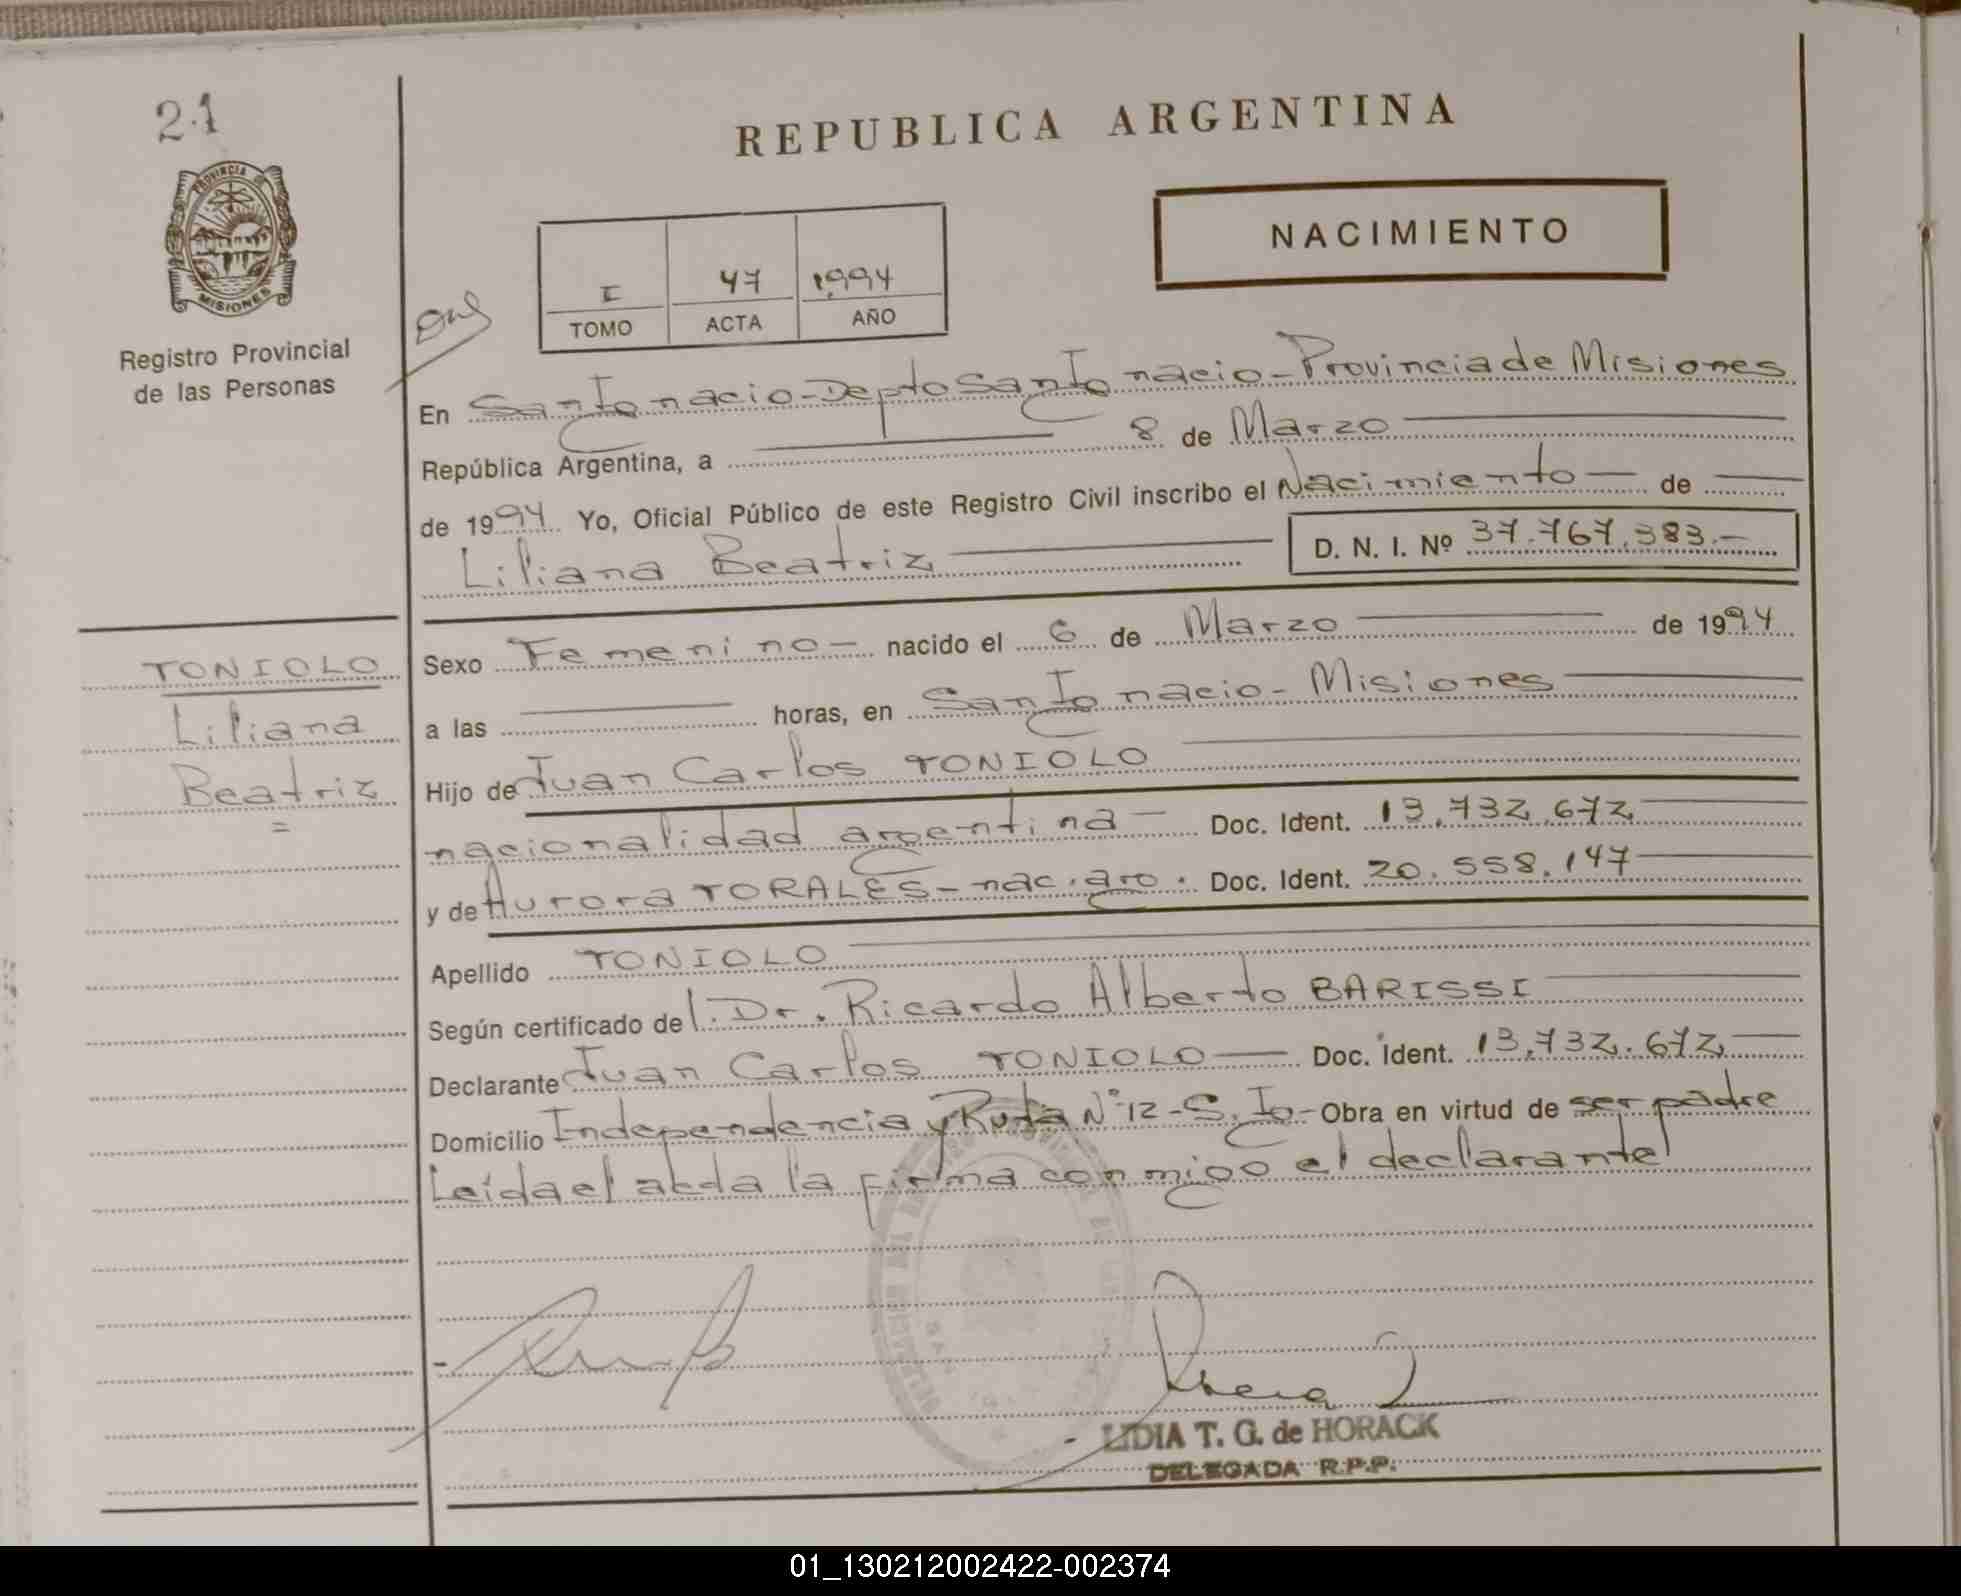 21
PROVINCIA DE
MISIONES
Registro Provincial
de las Personas
REPUBLICA ARGENTINA
NACIMIENTO
I 47 1.994
TOMO ACTA AÑO
En San Ignacio-Depto San Ignacio-Provincia de Misiones
República Argentina, a 8 de Marzo
de 1994 Yo, Oficial Público de este Registro Civil inscribo el Nacimiento — de
Liliana Beatriz D. N. I. Nº 37.767.383.-
Sexo Femenino- nacido el 6 de Marzo de 1994
a las horas, en San Ignacio- Misiones
Hijo de Juan Carlos TONIOLO
nacionalidad argentina - Doc. Ident. 13.732.672
y de Aurora TORALES- nac. arg. Doc. Ident. 20.558.147
Apellido TONIOLO
Según certificado del. Dr. Ricardo Alberto BARISSI
Declarante Juan Carlos TONIOLO Doc. Ident. 13.732.672
Domicilio Independencia y Ruta Nº 12-S. Ig- Obra en virtud de ser padre
Leída el acta la firma conmigo el declarante
TONIOLO
Liliana
Beatriz
LIDIA T. G. de HORACK
DELEGADA R.P.P.
01_130212002422-002374